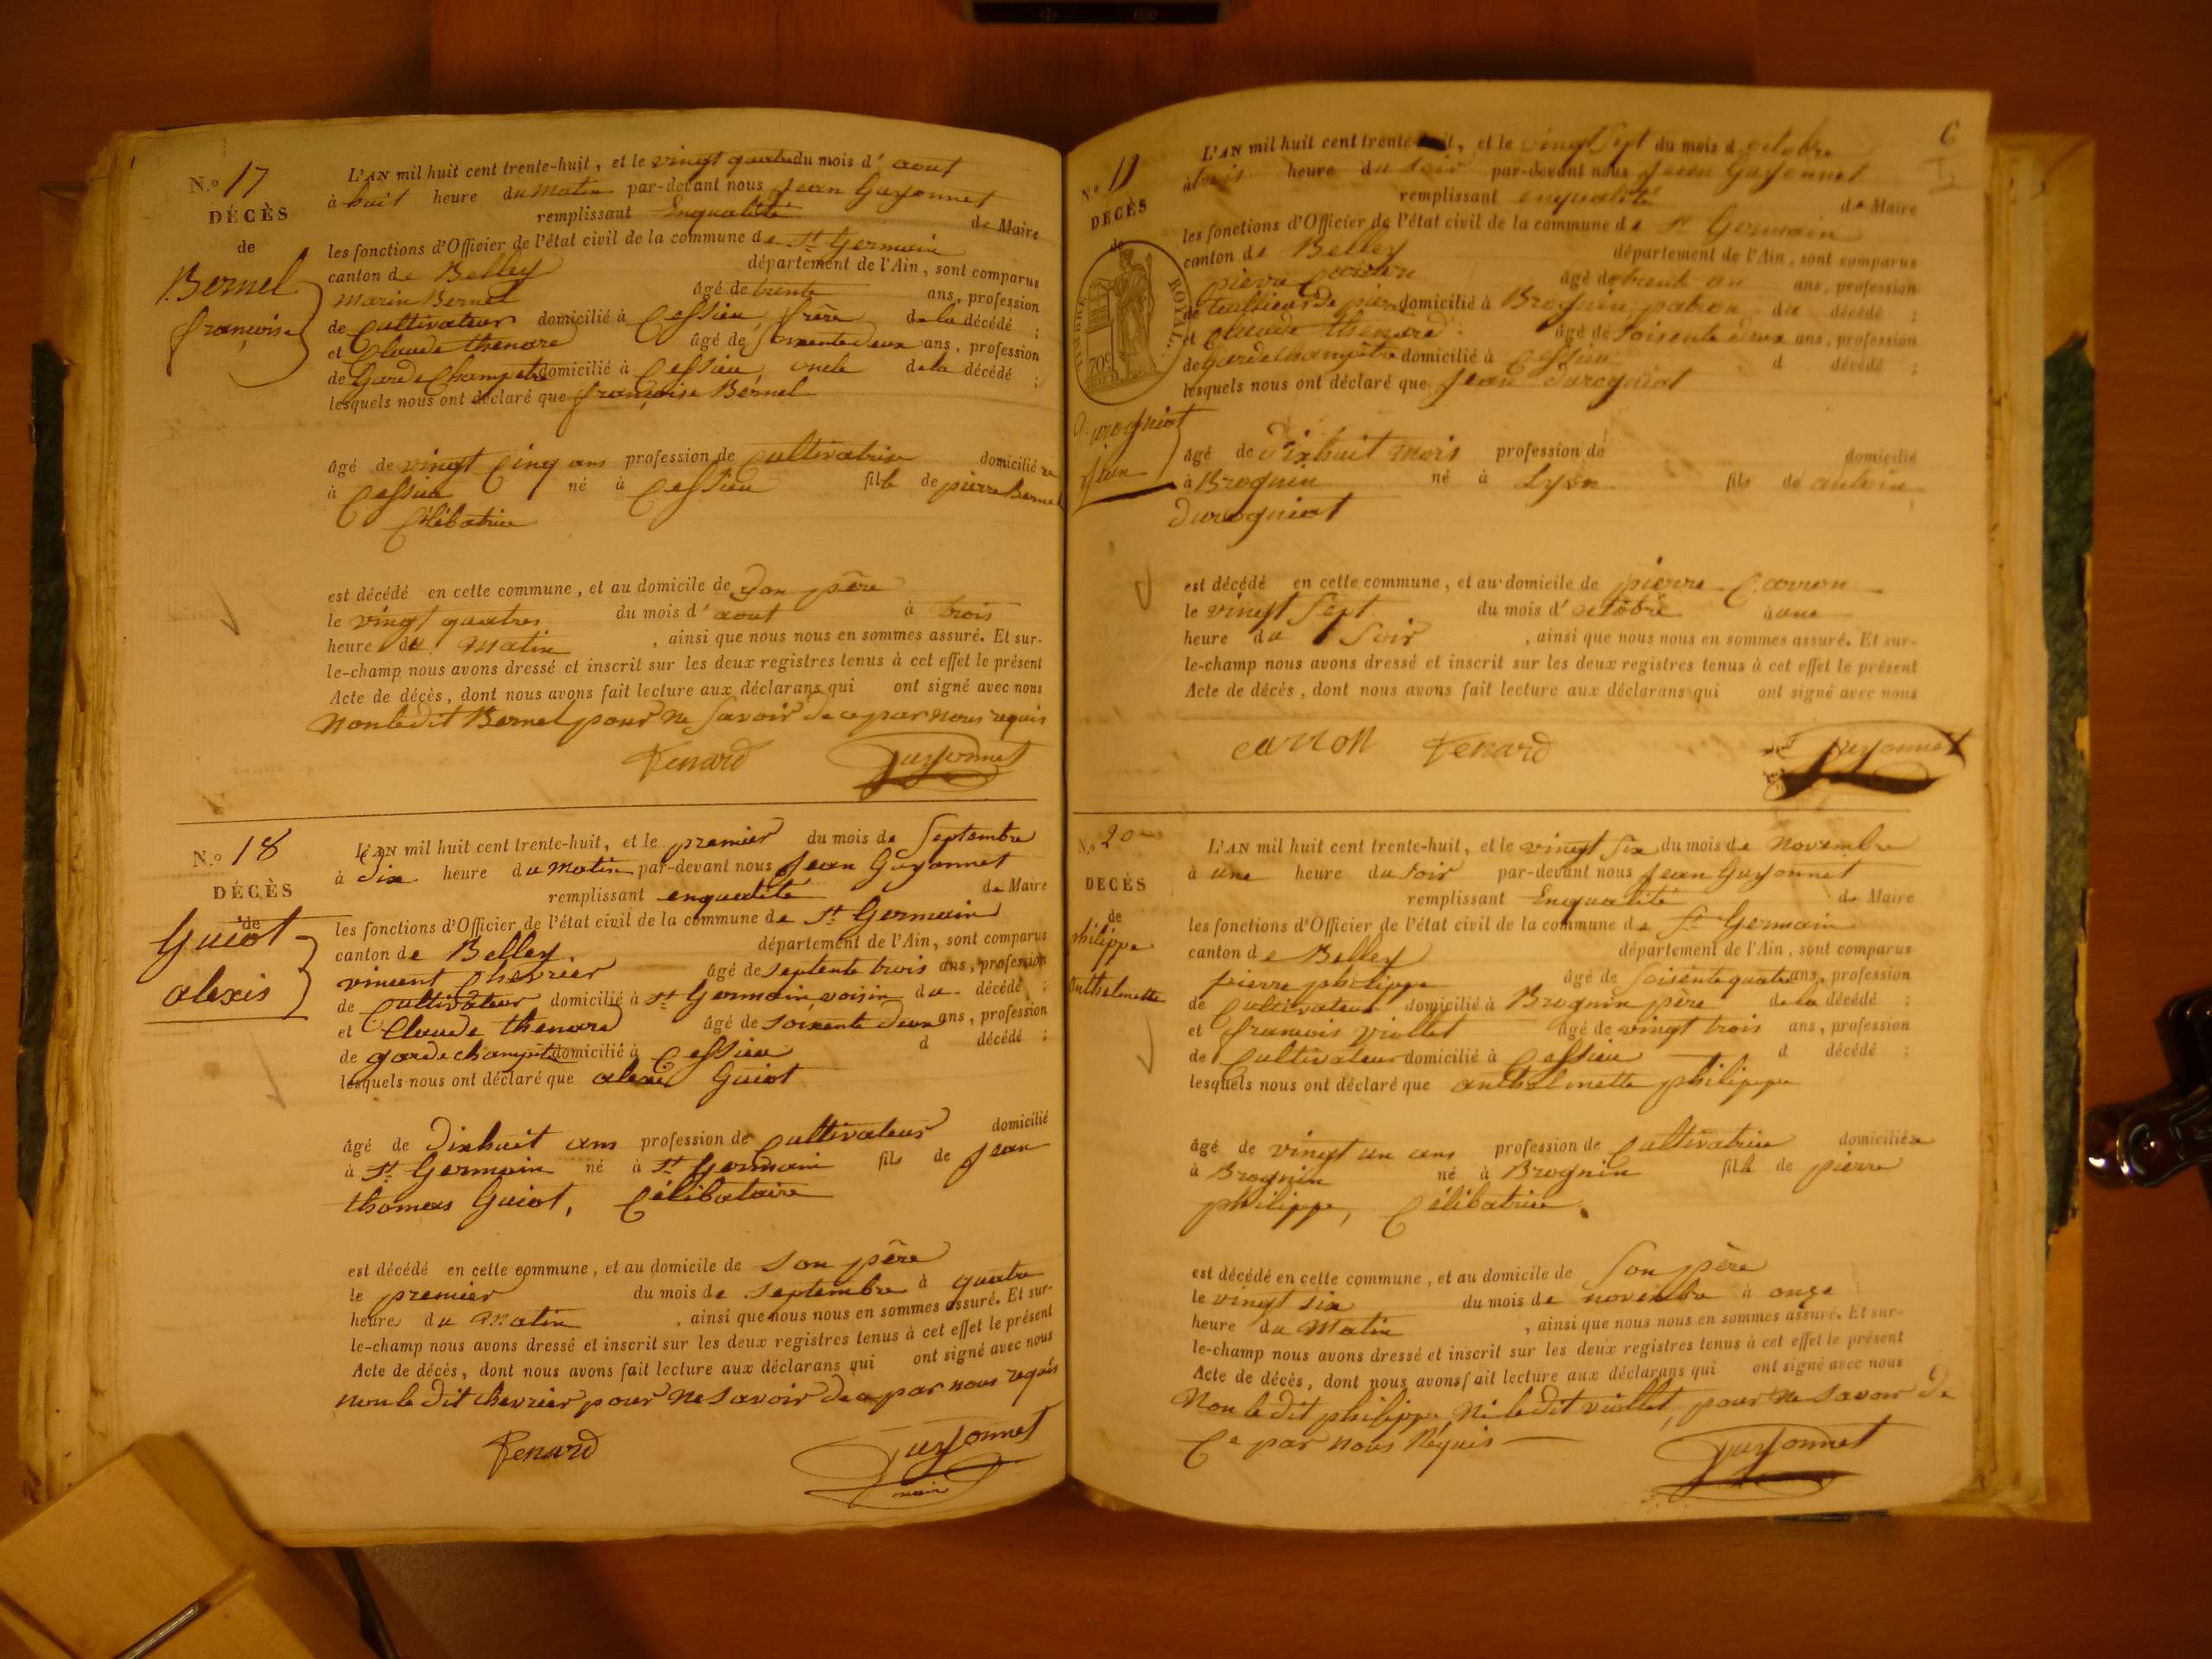 N.° 17
DÉCÈS
de
Bernel
françoise
L'AN mil huit cent trente-huit, et le vingt quatre du mois d' aout
à huit heure du matin par-devant nous Jean Guyonnet
remplissant Enqualité de Maire
les fonctions d'Officier de l'état civil de la commune de St Germain
canton de Belley département de l'Ain, sont comparus
marin Bernel âgé de trente ans, profession
de Cultivateur domicilié à Cessieu frère de la décédé ;
et Claude thenard âgé de soixente deux ans, profession
de Garde Champetre domicilié à Cessieu, oncle de la décédé ;
lesquels nous ont déclaré que françoise Bernel
âgé de vingt Cinq ans profession de Cultivatrice domicilié e
à Cessieu né à Cessieu fille de pierre Bernel
Célibatrice
est décédé en cette commune, et au domicile de Son père
le vingt quatres du mois d' aout à trois
heure du Matin , ainsi que nous nous en sommes assuré. Et sur-
le-champ nous avons dressé et inscrit sur les deux registres tenus à cet effet le présent
Acte de décès, dont nous avons fait lecture aux déclarans qui ont signé avec nous
Non le dit Bernel pour ne Savoir de ce par nous requis
Tenard Guyonnet
N.° 18
DÉCÈS
de
Guiot
alexis
L'AN mil huit cent trente-huit, et le premier du mois de Septembre
à dix heure du matin par-devant nous Jean Guyonnet
remplissant enqualité de Maire
les fonctions d'Officier de l'état civil de la commune de St Germain
canton de Belley département de l'Ain, sont comparus
vincent Chevrier âgé de septente trois ans, profession
de Cultivateur domicilié à St Germain voisin du décédé ;
et Claude thenard âgé de soixente deux ans, profession
de garde champetre domicilié à Cessieu d décédé ;
lesquels nous ont déclaré que alexis Guiot
âgé de dixhuit ans profession de Cultivateur domicilié
à St Germain né à St Germain fils de Jean
thomas Guiot, Célibataire
est décédé en cette commune, et au domicile de son père
le premier du mois de septembre à quatre
heures du Matin , ainsi que nous nous en sommes assuré. Et sur-
le-champ nous avons dressé et inscrit sur les deux registres tenus à cet effet le présent
Acte de décès, dont nous avons fait lecture aux déclarans qui ont signé avec nous
non le dit chevrier pour ne savoir de ce par nous requis
Tenard Guyonnet
maire
6
N.°
DÉCÈS
de
TIMBRE ROYAL
70c
Durogniat
Jean
L'AN mil huit cent trente-huit, et le vingt Sept du mois d octobre
à trois heure du soir par-devant nous Jean Guyonnet
remplissant enqualité de Maire
les fonctions d'Officier de l'état civil de la commune de St Germain
canton de Belley département de l'Ain, sont comparus
pierre Carron âgé de trente an ans, profession
de tailleur de pier domicilié à Brognin patron du décédé ;
et Claude thenard âgé de soisente deux ans, profession
de garde champêtre domicilié à Cessieu d décédé ;
lesquels nous ont déclaré que Jean durogniat
âgé de dixhuit mois profession de domicilié
à Brognin né à Lyon fils de antoine
durogniat
est décédé en cette commune, et au domicile de pierre Carron
le vingt Sept du mois d' octobre à une
heure du Soir , ainsi que nous nous en sommes assuré. Et sur-
le-champ nous avons dressé et inscrit sur les deux registres tenus à cet effet le présent
Acte de décès, dont nous avons fait lecture aux déclarans qui ont signé avec nous
carron Tenard Guyonnet
N.° 20
DÉCÈS
de
philippe
anthelmette
L'AN mil huit cent trente-huit, et le vingt Six du mois de Novembre
à une heure du soir par-devant nous Jean Guyonnet
remplissant Enqualité de Maire
les fonctions d'Officier de l'état civil de la commune de St Germain
canton de Belley département de l'Ain, sont comparus
pierre philippe âgé de soisente quatre ans, profession
de Cultivateur domicilié à Brognin père de la décédé ;
et francois viollet âgé de vingt trois ans, profession
de Cultivateur domicilié à Cessieu d décédé ;
lesquels nous ont déclaré que anthelmette philippe
âgé de vingt un ans profession de Cultivatrice domicilié e
à Brognin né à Brognin fille de pierre
philippe, Célibatrice.
est décédé en cette commune, et au domicile de Son père
le vingt six du mois de novembre à onze
heure du Matin , ainsi que nous nous en sommes assuré. Et sur-
le-champ nous avons dressé et inscrit sur les deux registres tenus à cet effet le présent
Acte de décès, dont nous avons fait lecture aux déclarans qui ont signé avec nous
Non le dit philippe, Ni le dit viollet, pour ne savoir de
Ce par nous Réquis
Guyonnet